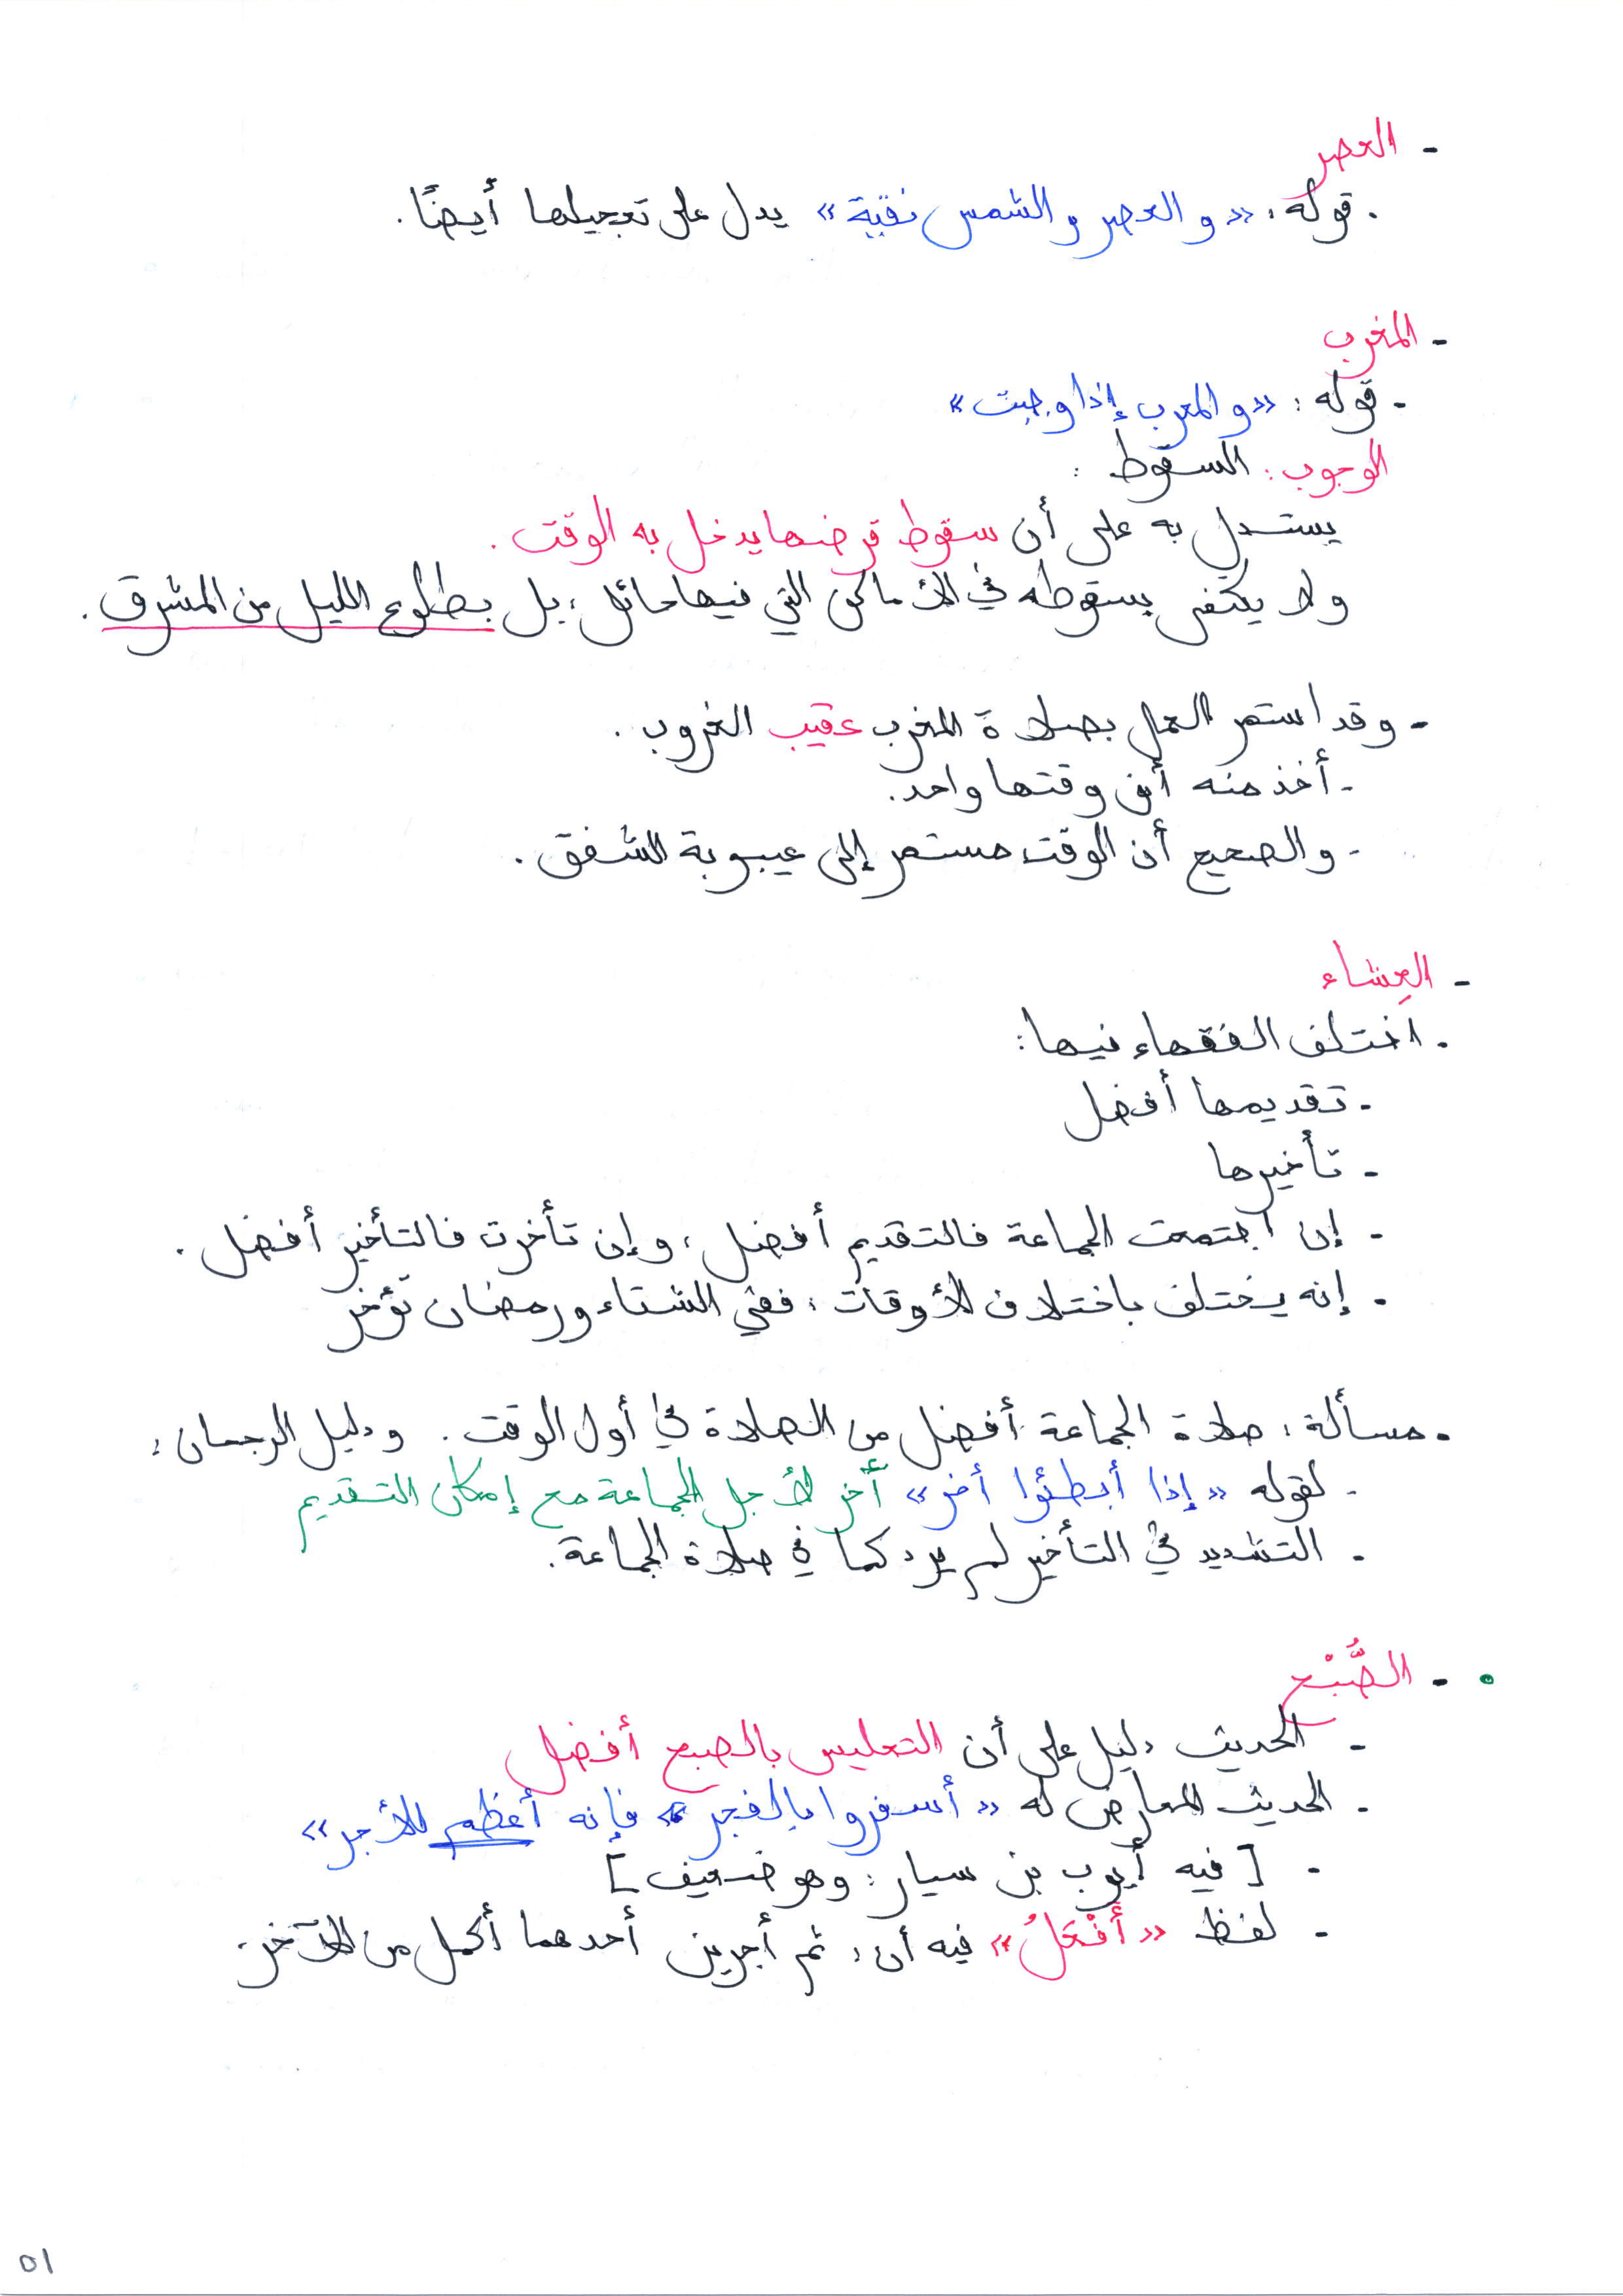 - العصر
. قوله: «والعصر والشمس نقية» يدل على تعجيلها أيضًا.
- المغرب
- قوله: «والمغرب إذا وجبت»
الوجوب: السقوط:
يستدل به على أن سقوط قرضها يدخل به الوقت.
ولا يكفى بسقوطه في الأماكن التي فيها حائل، بل بطلوع الليل من المشرق.
- وقد استمر العمل بصلاة المغرب عقيب الغروب.
- أخذ منه أن وقتها واحد.
- والصحيح أن الوقت مستمر إلى غيبوبة الشفق.
- العِشاء
. اختلف الفقهاء فيها:
- تقديمها أفضل
- تأخيرها
- إن اجتمعت الجماعة فالتقديم أفضل، وإن تأخرت فالتأخير أفضل.
. إنه يختلف باختلاف الأوقات، ففي الشتاء ورمضان تؤخر
. مسألة: صلاة الجماعة أفضل من الصلاة في أول الوقت. ودليل الرجحان:
- لقوله «إذا أبطئوا أخر» أخر لأجل الجماعة مع إمكان التقديم
. التشديد في التأخير لم يرد كما في صلاة الجماعة.
. - الصُّبْح
- الحديث دليل على أن التغليس بالصبح أفضل
. الحديث المعارض له «أسفروا بالفجر» فإنه أعظم للأجر»
. [فيه أيوب بن سيار: وهو ضعيف]
. لفظ «أَفْعَلُ» فيه أن: ثم أجرين أحدهما أكمل من الآخر.
٥١